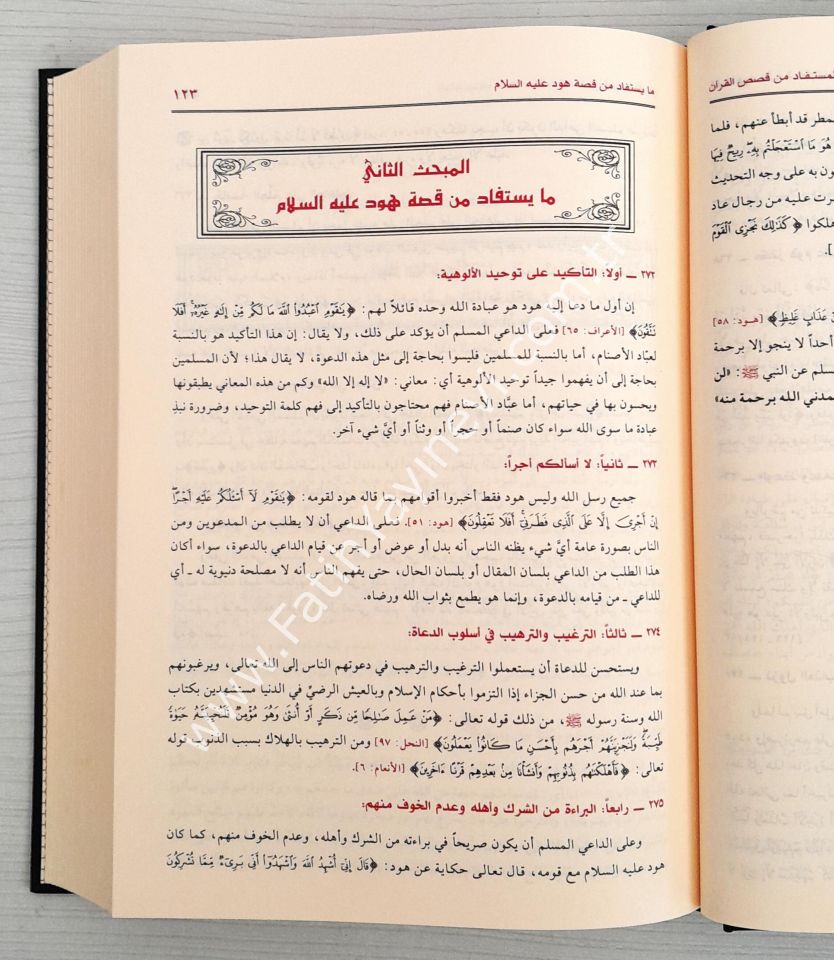 ما يستفاد من قصة هود عليه السلام
١٢٣
المبحث الثاني
ما يستفاد من قصة هود عليه السلام
٢٧٢ ــ أولا: التأكيد على توحيد الألوهية:
إن أول ما دعا إليه هود هو عبادة الله وحده قائلاً لهم: ﴿يَٰقَوْمِ ٱعْبُدُوا۟ ٱللَّهَ مَا لَكُم مِّنْ إِلَٰهٍ غَيْرُهُۥٓ أَفَلَا
تَتَّقُونَ﴾ [الأعراف: ٦٥] فعلى الداعي المسلم أن يؤكد على ذلك، ولا يقال: إن هذا التأكيد هو بالنسبة
لعبّاد الأصنام، أما بالنسبة للمسلمين فليسوا بحاجة إلى مثل هذه الدعوة، لا يقال هذا؛ لأن المسلمين
بحاجة إلى أن يفهموا جيداً توحيد الألوهية أي: معاني: «لا إله إلا الله» وكم من هذه المعاني يطبقونها
ويحسون بها في حياتهم، أما عبَّاد الأصنام فهم محتاجون بالتأكيد إلى فهم كلمة التوحيد، وضرورة نبذ
عبادة ما سوى الله سواء كان صنماً أو حجراً أو وثناً أو أيَّ شيء آخر.
٢٧٣ ــ ثانياً: لا أسألكم أجراً:
جميع رسل الله وليس هود فقط أخبروا أقوامهم بما قاله هود لقومه: ﴿يَٰقَوْمِ لَآ أَسْـَٔلُكُمْ عَلَيْهِ أَجْرًا
إِنْ أَجْرِىَ إِلَّا عَلَى ٱلَّذِى فَطَرَنِىٓ أَفَلَا تَعْقِلُونَ﴾ [هود: ٥١]. فعلى الداعي أن لا يطلب من المدعوين ومن
الناس بصورة عامة أيَّ شيء يظنه الناس أنه بدل أو عوض أو أجر عن قيام الداعي بالدعوة، سواء أكان
هذا الطلب من الداعي بلسان المقال أو بلسان الحال، حتى يفهم الناس أنه لا مصلحة دنيوية له ــ أي
للداعي ــ من قيامه بالدعوة، وإنما هو يطمع بثواب الله ورضاه.
٢٧٤ ــ ثالثاً: الترغيب والترهيب في أسلوب الدعاة:
ويستحسن للدعاة أن يستعملوا الترغيب والترهيب في دعوتهم الناس إلى الله تعالى، ويرغبونهم
بما عند الله من حسن الجزاء إذا التزموا بأحكام الإسلام وبالعيش الرضيِّ في الدنيا مستشهدين بكتاب
الله وسنة رسوله ﷺ، من ذلك قوله تعالى: ﴿مَنْ عَمِلَ صَٰلِحًا مِّن ذَكَرٍ أَوْ أُنثَىٰ وَهُوَ مُؤْمِنٌ فَلَنُحْيِيَنَّهُۥ حَيَوٰةً
طَيِّبَةً وَلَنَجْزِيَنَّهُمْ أَجْرَهُم بِأَحْسَنِ مَا كَانُوا۟ يَعْمَلُونَ﴾ [النحل: ٩٧] ومن الترهيب بالهلاك بسبب الذنوب قوله
تعالى: ﴿فَأَهْلَكْنَٰهُم بِذُنُوبِهِمْ وَأَنشَأْنَا مِنۢ بَعْدِهِمْ قَرْنًا ءَاخَرِينَ﴾ [الأنعام: ٦].
٢٧٥ ــ رابعاً: البراءة من الشرك وأهله وعدم الخوف منهم:
وعلى الداعي المسلم أن يكون صريحاً في براءته من الشرك وأهله، وعدم الخوف منهم، كما كان
هود عليه السلام مع قومه، قال تعالى حكاية عن هود: ﴿قَالَ إِنِّىٓ أُشْهِدُ ٱللَّهَ وَٱشْهَدُوٓا۟ أَنِّى بَرِىٓءٌ مِّمَّا تُشْرِكُونَ
المستفاد من قصص القرآن
مطر قد أبطأ عنهم، فلما
هُوَ مَا ٱسْتَعْجَلْتُم بِهِۦ رِيحٌ فِيهَا
ون به على وجه التحديث
رت عليه من رجال عاد
هلكوا ﴿كَذَٰلِكَ نَجْزِى ٱلْقَوْمَ
].
نْ عَذَابٍ غَلِيظٍ﴾ [هود: ٥٨]
أحداً لا ينجو إلا برحمة
سلم عن النبي ﷺ: «لن
مدني الله برحمة منه»
www.FatihYayinevi.com.tr